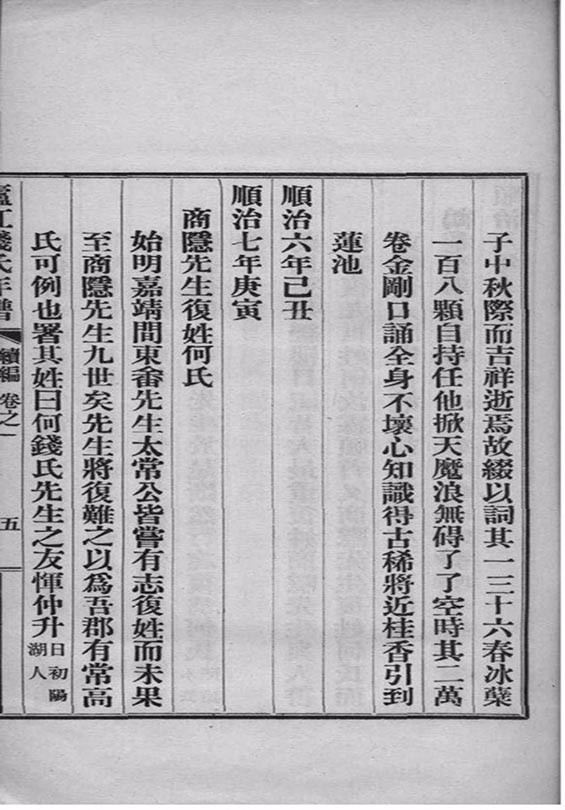 子中秋際而吉祥逝焉故綴以詞其一三十六春冰蘗
一百八顆自持任他掀天魔浪無碍了了空時其二萬
卷金剛口誦全身不壞心知識得古稀將近桂香引到
蓮池
順治六年己丑
順治七年庚寅
商隱先生復姓何氏
始明嘉靖間東畬先生太常公皆嘗有志復姓而未果
至商隱先生九世矣先生將復難之以爲吾郡有常高
氏可例也署其姓曰何錢氏先生之友惲仲升日初陽
湖人
廬江錢氏年譜 續編 卷之一 五